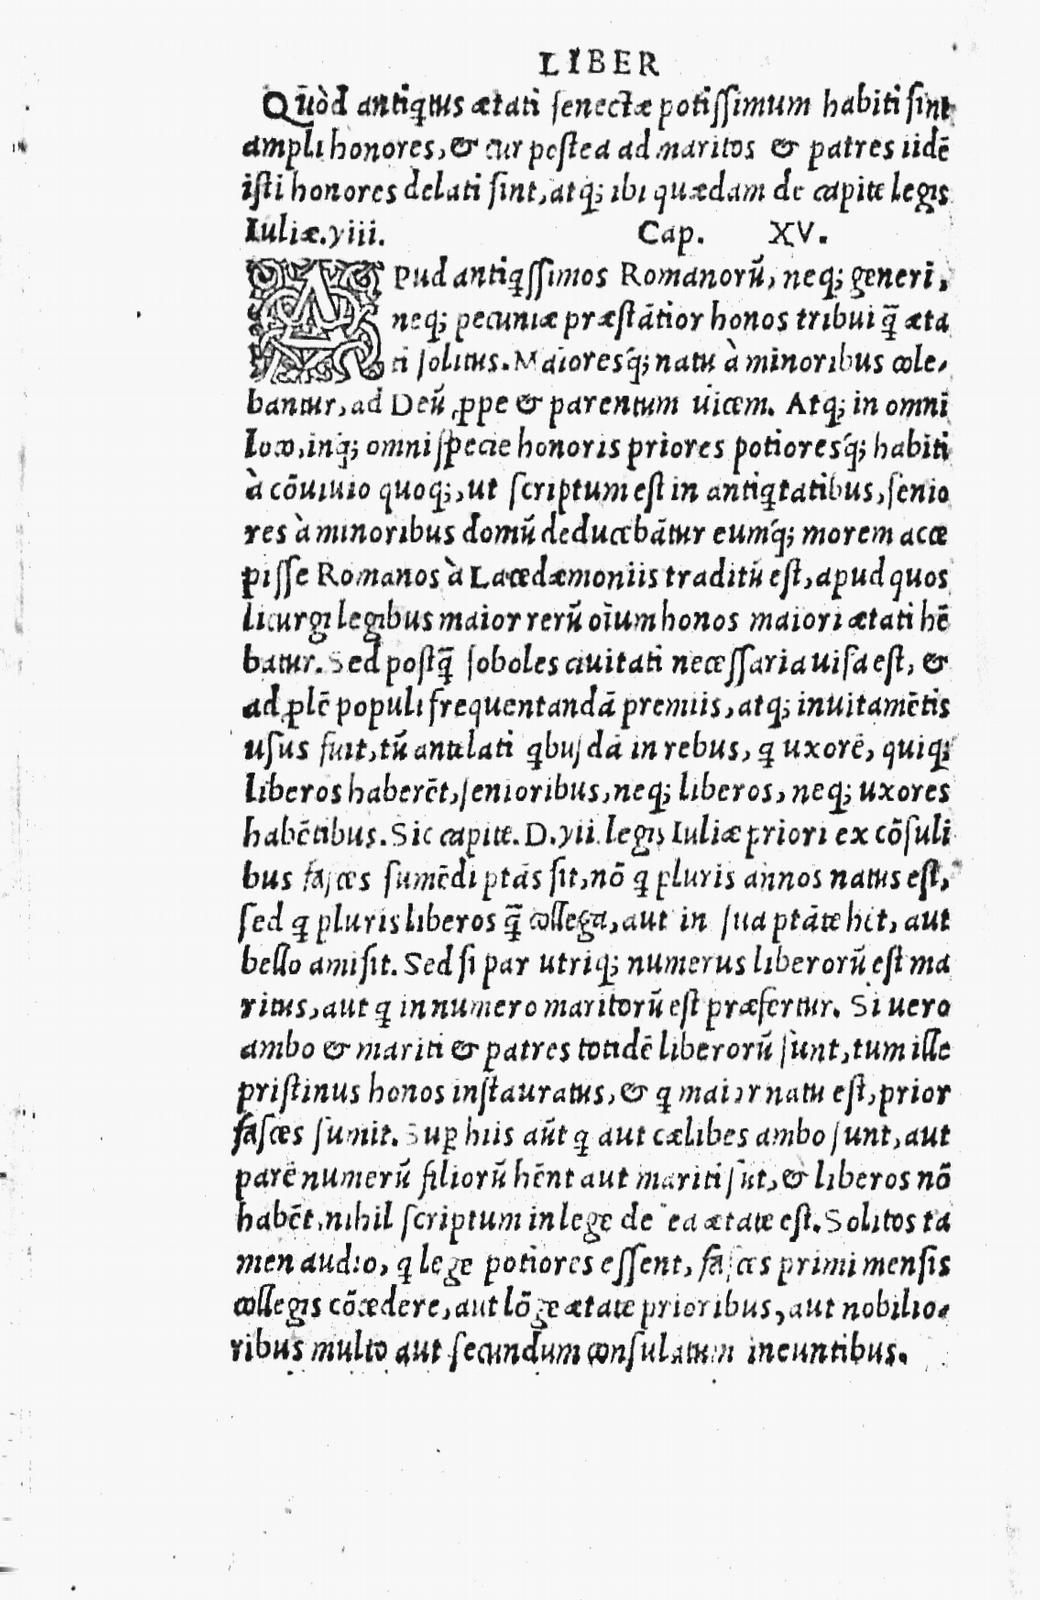 LIBER
Qūòd antiq̃tus ætati senectæ potissimum habiti sint
ampli honores, & cur postea ad maritos & patres iidē
isti honores delati sint, atq; ibi quædam de capite legis
Iuliæ.yiii. Cap. XV.
APud antiq̃ssimos Romanorū, neq; generi,
neq; pecuniæ præstātior honos tribui q̄ æta
ti solitus. Maioresq́; natu à minoribus cole-
bantur, ad Deū ꝓpe & parentum uicem. Atq; in omni
loco, inq́; omni specie honoris priores potioresq́; habiti
à cōuiuio quoq;, ut scriptum est in antiq̃tatibus, senio
res à minoribus domū deducebātur eumq́; morem acce
pisse Romanos à Lacedæmoniis traditū est, apud quos
licurgi legibus maior rerū oīum honos maiori ætati hē
batur. Sed postq̄ soboles ciuitati necessaria uisa est, &
ad ꝓlē populi frequentandā premiis, atq; inuitamētis
usus fuit, tū antelati q̃busdā in rebus, q̃ uxorē, quiq;
liberos haberēt, senioribus, neq; liberos, neq; uxores
habētibus. Sic capite. D.yii. legis Iuliæ priori ex cōsuli
bus fasces sumēdi ptās sit, nō q̃ pluris annos natus est,
sed q̃ pluris liberos q̄ collega, aut in sua ptāte hēt, aut
bello amisit. Sed si par utriq; numerus liberorū est ma
ritus, aut q̃ in numero maritorū est præfertur. Si uero
ambo & mariti & patres totidē liberorū sunt, tum ille
pristinus honos instauratus, & q̃ maior natu est, prior
fasces sumit. Suꝑ hiis aūt q̃ aut cælibes ambo sunt, aut
parē numerū filiorū hēnt aut mariti sūt, & liberos nō
habēt, nihil scriptum in lege de ea ætate est. Solitos ta
men audio, q̃ lege potiores essent, fasces primi mensis
collegis cōcedere, aut lōge ætate prioribus, aut nobilio-
ribus multo aut secundum consulatum ineuntibus.